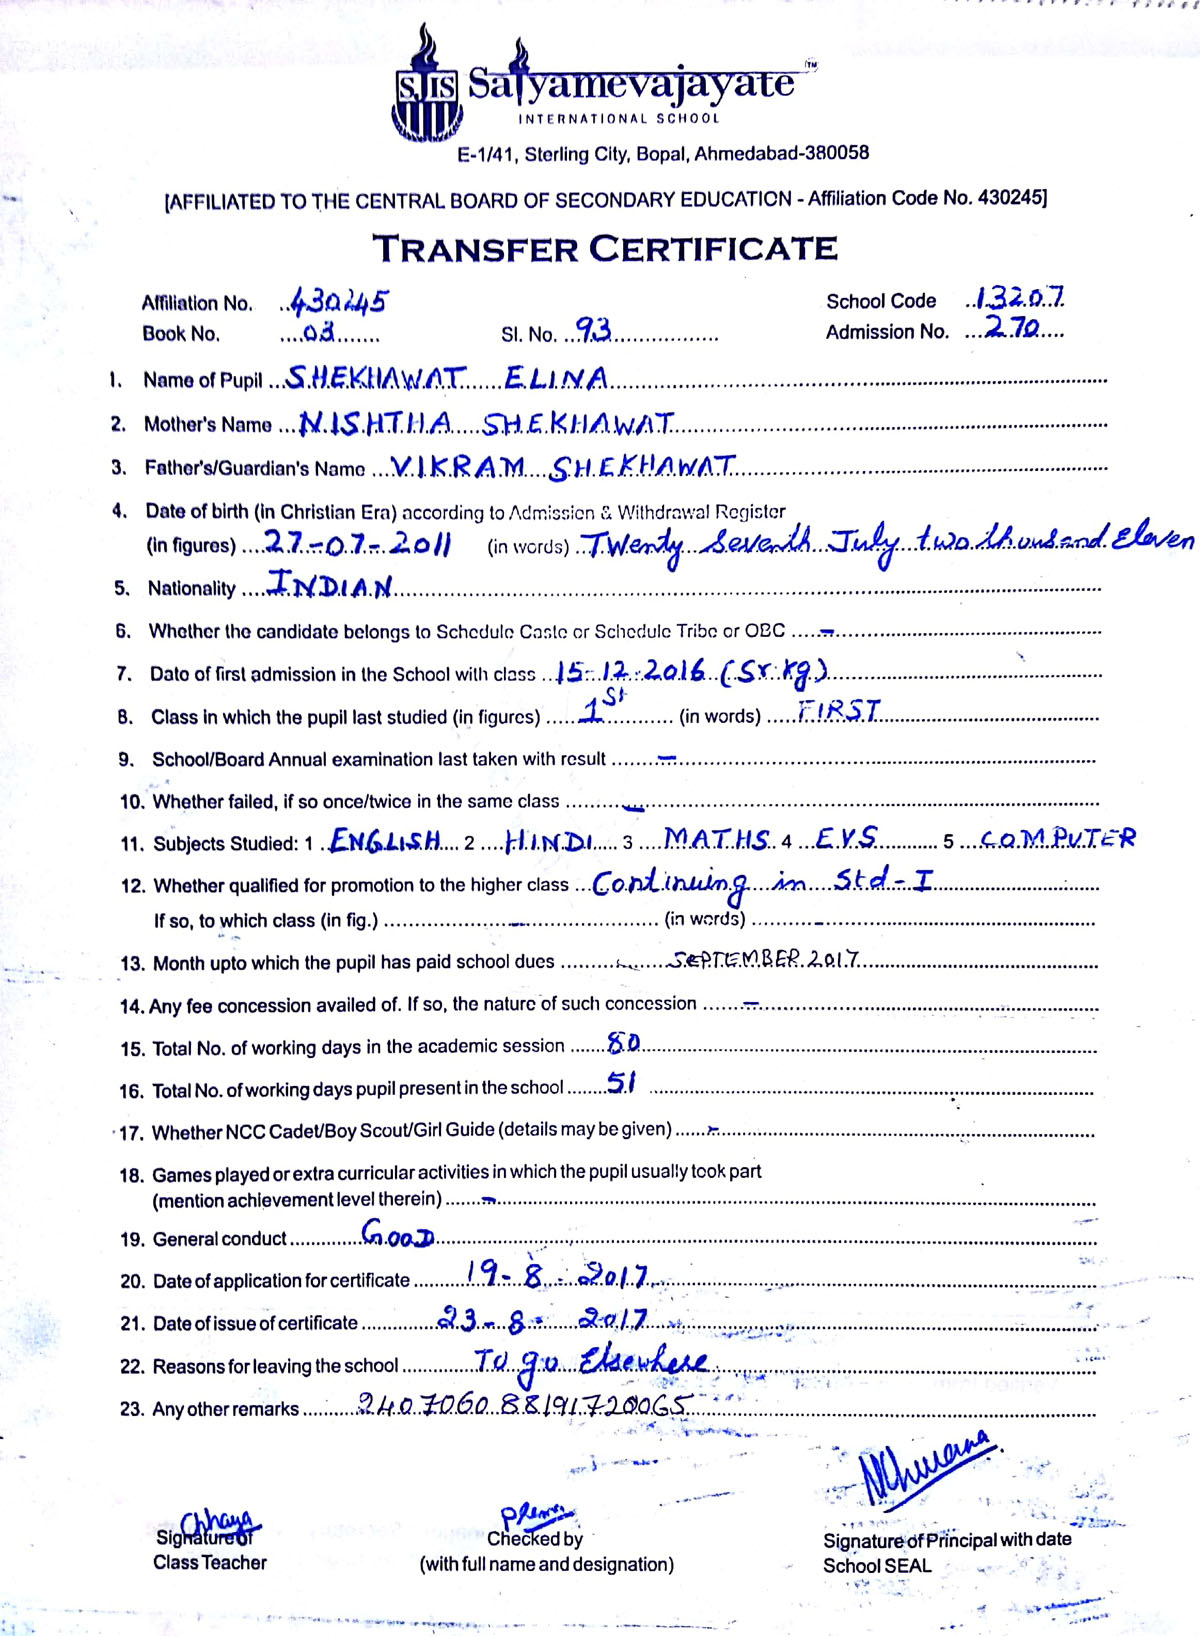 SJIS Satyamevajayate TM
INTERNATIONAL SCHOOL
E-1/41, Sterling City, Bopal, Ahmedabad-380058
[AFFILIATED TO THE CENTRAL BOARD OF SECONDARY EDUCATION - Affiliation Code No. 430245]
TRANSFER CERTIFICATE
Affiliation No. 430245 School Code 13207
Book No. 03 Sl. No. 93 Admission No. 270
1. Name of Pupil SHEKHAWAT ELINA
2. Mother's Name NISHTHA SHEKHAWAT
3. Father's/Guardian's Name VIKRAM SHEKHAWAT
4. Date of birth (in Christian Era) according to Admission & Withdrawal Register
(in figures) 27-07-2011 (in words) Twenty Seventh July two thousand Eleven
5. Nationality INDIAN
6. Whether the candidate belongs to Schedule Caste or Schedule Tribe or OBC -
7. Date of first admission in the School with class 15-12-2016 (Sr.kg)
8. Class in which the pupil last studied (in figures) 1st (in words) FIRST
9. School/Board Annual examination last taken with result -
10. Whether failed, if so once/twice in the same class -
11. Subjects Studied: 1 ENGLISH 2 HINDI 3 MATHS 4 EVS 5 COMPUTER
12. Whether qualified for promotion to the higher class Continuing in Std-I
If so, to which class (in fig.) - (in words) -
13. Month upto which the pupil has paid school dues SEPTEMBER 2017
14. Any fee concession availed of. If so, the nature of such concession -
15. Total No. of working days in the academic session 80
16. Total No. of working days pupil present in the school 51
17. Whether NCC Cadet/Boy Scout/Girl Guide (details may be given) -
18. Games played or extra curricular activities in which the pupil usually took part
(mention achievement level therein) -
19. General conduct GOOD
20. Date of application for certificate 19-8-2017
21. Date of issue of certificate 23-8-2017
22. Reasons for leaving the school To go Elsewhere
23. Any other remarks 240706088191720065
Chhaya
Signature of Checked by Signature of Principal with date
Class Teacher (with full name and designation) School SEAL